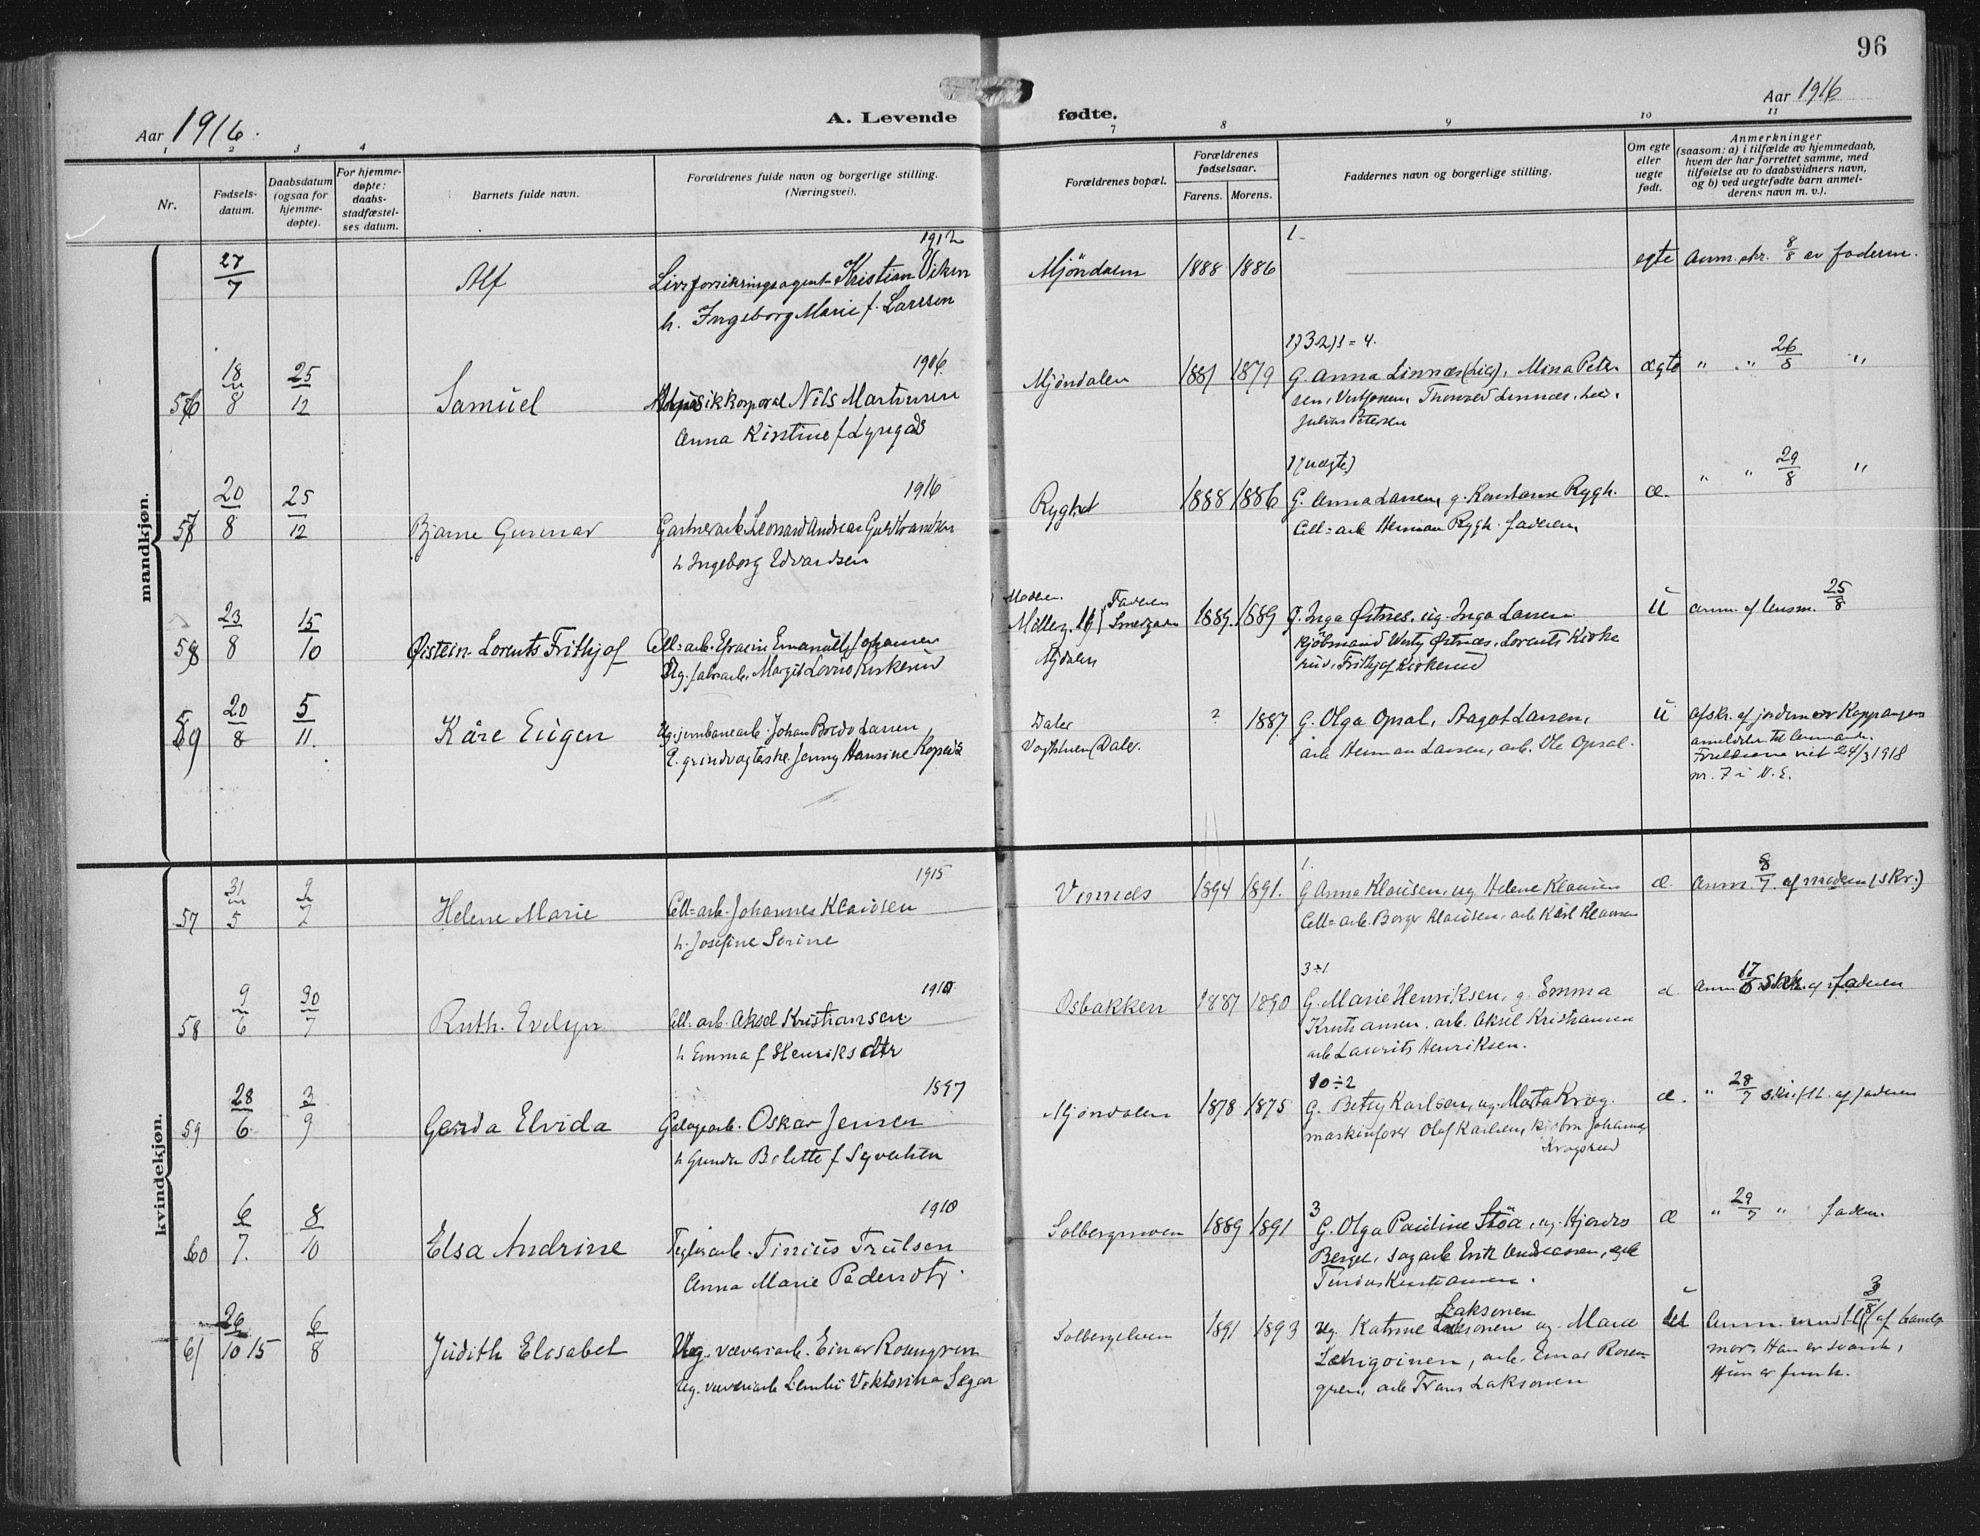 96
Aar 1916.
A. Levende
fødte.
Aar 1916
1 2 3 4
7 8 9 10 11
Nr.
Fødsels-
datum.
Daabsdatum
(ogsaa for
hjemme-
døpte).
For hjemme-
døpte:
daabs-
stadfæstel-
ses datum.
Barnets fulde navn.
Forældrenes fulde navn og borgerlige stilling.
(Næringsvei).
Forældrenes bopæl.
Forældrenes
fødselsaar.
Farens. Morens.
Faddernes navn og borgerlige stilling.
Om egte
eller
uegte
født.
Anmerkninger
(saasom: a) i tilfælde av hjemmedaab,
hvem der har forrettet samme, med
tilføielse av to daabsvidners navn,
og b) ved uegtefødte barn anmel-
derens navn m. v.).
mandkjøn.
27/7 Alf
1912
Livsforsikringsagent Kristian Viken
h. Ingeborg Marie f. Larssen
Mjöndalen 1888 1886
1.
egte Anm. skr. 8/8 av faderen.
56 18/8 25/12 Samuel
1906
Musikkorporal Nils Martinsen
Anna Kirstine f Lyngås
Mjøndalen 1881 1879
1) 3 2) 1 = 4.
G. Anna Linnæs (Lier), Mina Peter
sen, Thorvald Linnæs, Lier,
Julius Petersen
ægte " " 26/8 "
57 20/8 25/12 Bjarne Gunnar
1916
Gartnerarb. Leonard Andreas Guldbrandsen
h Ingeborg Edvardsen
Ryghet 1888 1886
1 (uægte)
G. Anna Larsen, g. Konstanse Rygh.
Cell=arb Herman Rygh. faderen.
æ. " " 29/8 "
58 23/8 15/10 Øistein Lorents Frithjof
Cell=arb. Efraim Emanuel Johansen
Ug. fabrarb. Margit Lovise Kirkerud
Moderen
Faderen
Mjdalen
1889. 1889
G. Inga Østnes, ug. Inga Larsen
kjöbmand Østnæs, Lorents Kirke
rud, Frithjof Kirkerud
u anm. af lensm. 25/8
59 20/8 5/11. Kåre Eugen
Ug. jernbanearb. Johan Bredo Larsen
E. Jenny Hansine
Daler
(Daler.
? 1887.
G. Olga Opsal, Aagot Larsen,
arb Herman Larsen, arb. Ole Opsal.
u afskr. af jordemor Koppangens
anmeldelse til lensmanden.
Forældrene viet 24/3 1918
nr. 7 i V. E.
kvindekjøn.
57 31/5 9/7 Helene Marie
1915
Cell=arb. Johannes Klausen
h. Josefine Sorine
Vinnæs 1894 1891.
1.
G Anna Klausen, ug Helene Klausen
Cell=arb. Borger Klausen, arb Karl Klausen
æ. Anm. 8/7 af moderen (skr.)
58 9/6 30/7 Ruth Evelyn
1910
Cell=arb. Aksel Kristiansen
h Emma f Henriksdtr
Osbakken 1887 1890
3÷1
G. Marie Henriksen, g. Emma
Kristiansen, arb. Aksel Kristiansen
arb Laurits Henriksen.
æ. Anm 17/6 skr. af faderen
59 28/6 3/9 Gerda Elvida
1897
Galogearb. Oskar Jensen
h Gunda Bolette f Syvertsen
Mjøndalen 1878 1875
10÷2
G. Betsy Karlsen, ug. Marta Krog.
maskinfører Olaf Karlsen, Johannes
Krogsrud
æ. " 28/7 skriftl. af faderen
60 6/7. 8/10 Elsa Andrine
1910
Teglv.arb. Tinius Trulsen
Anna Marie Pedersdtr.
Solbergmoen 1889 1891
3
G. Olga Pauline Støa, ug. Hjørdis
Berger, sagarb. Erik Andreassen, arb
Tinius Kristiansen.
æ " 29/7 " faderen.
61 26/10 15 6/8 Judith Elisabet
Ug. væveriarb. Einar Rosengren
Ug. væveriarb Lembi Viktorina Segar
Solbergelven 1891 1893
Laksonen
Ug. Katrine Laksonen ug. Marie
arb. Einar Rosen-
gren, arb Frans Laksonen
u Anm. mundtl. 3/8 af barnets
mor. Han er svensk,
Hun er finsk.